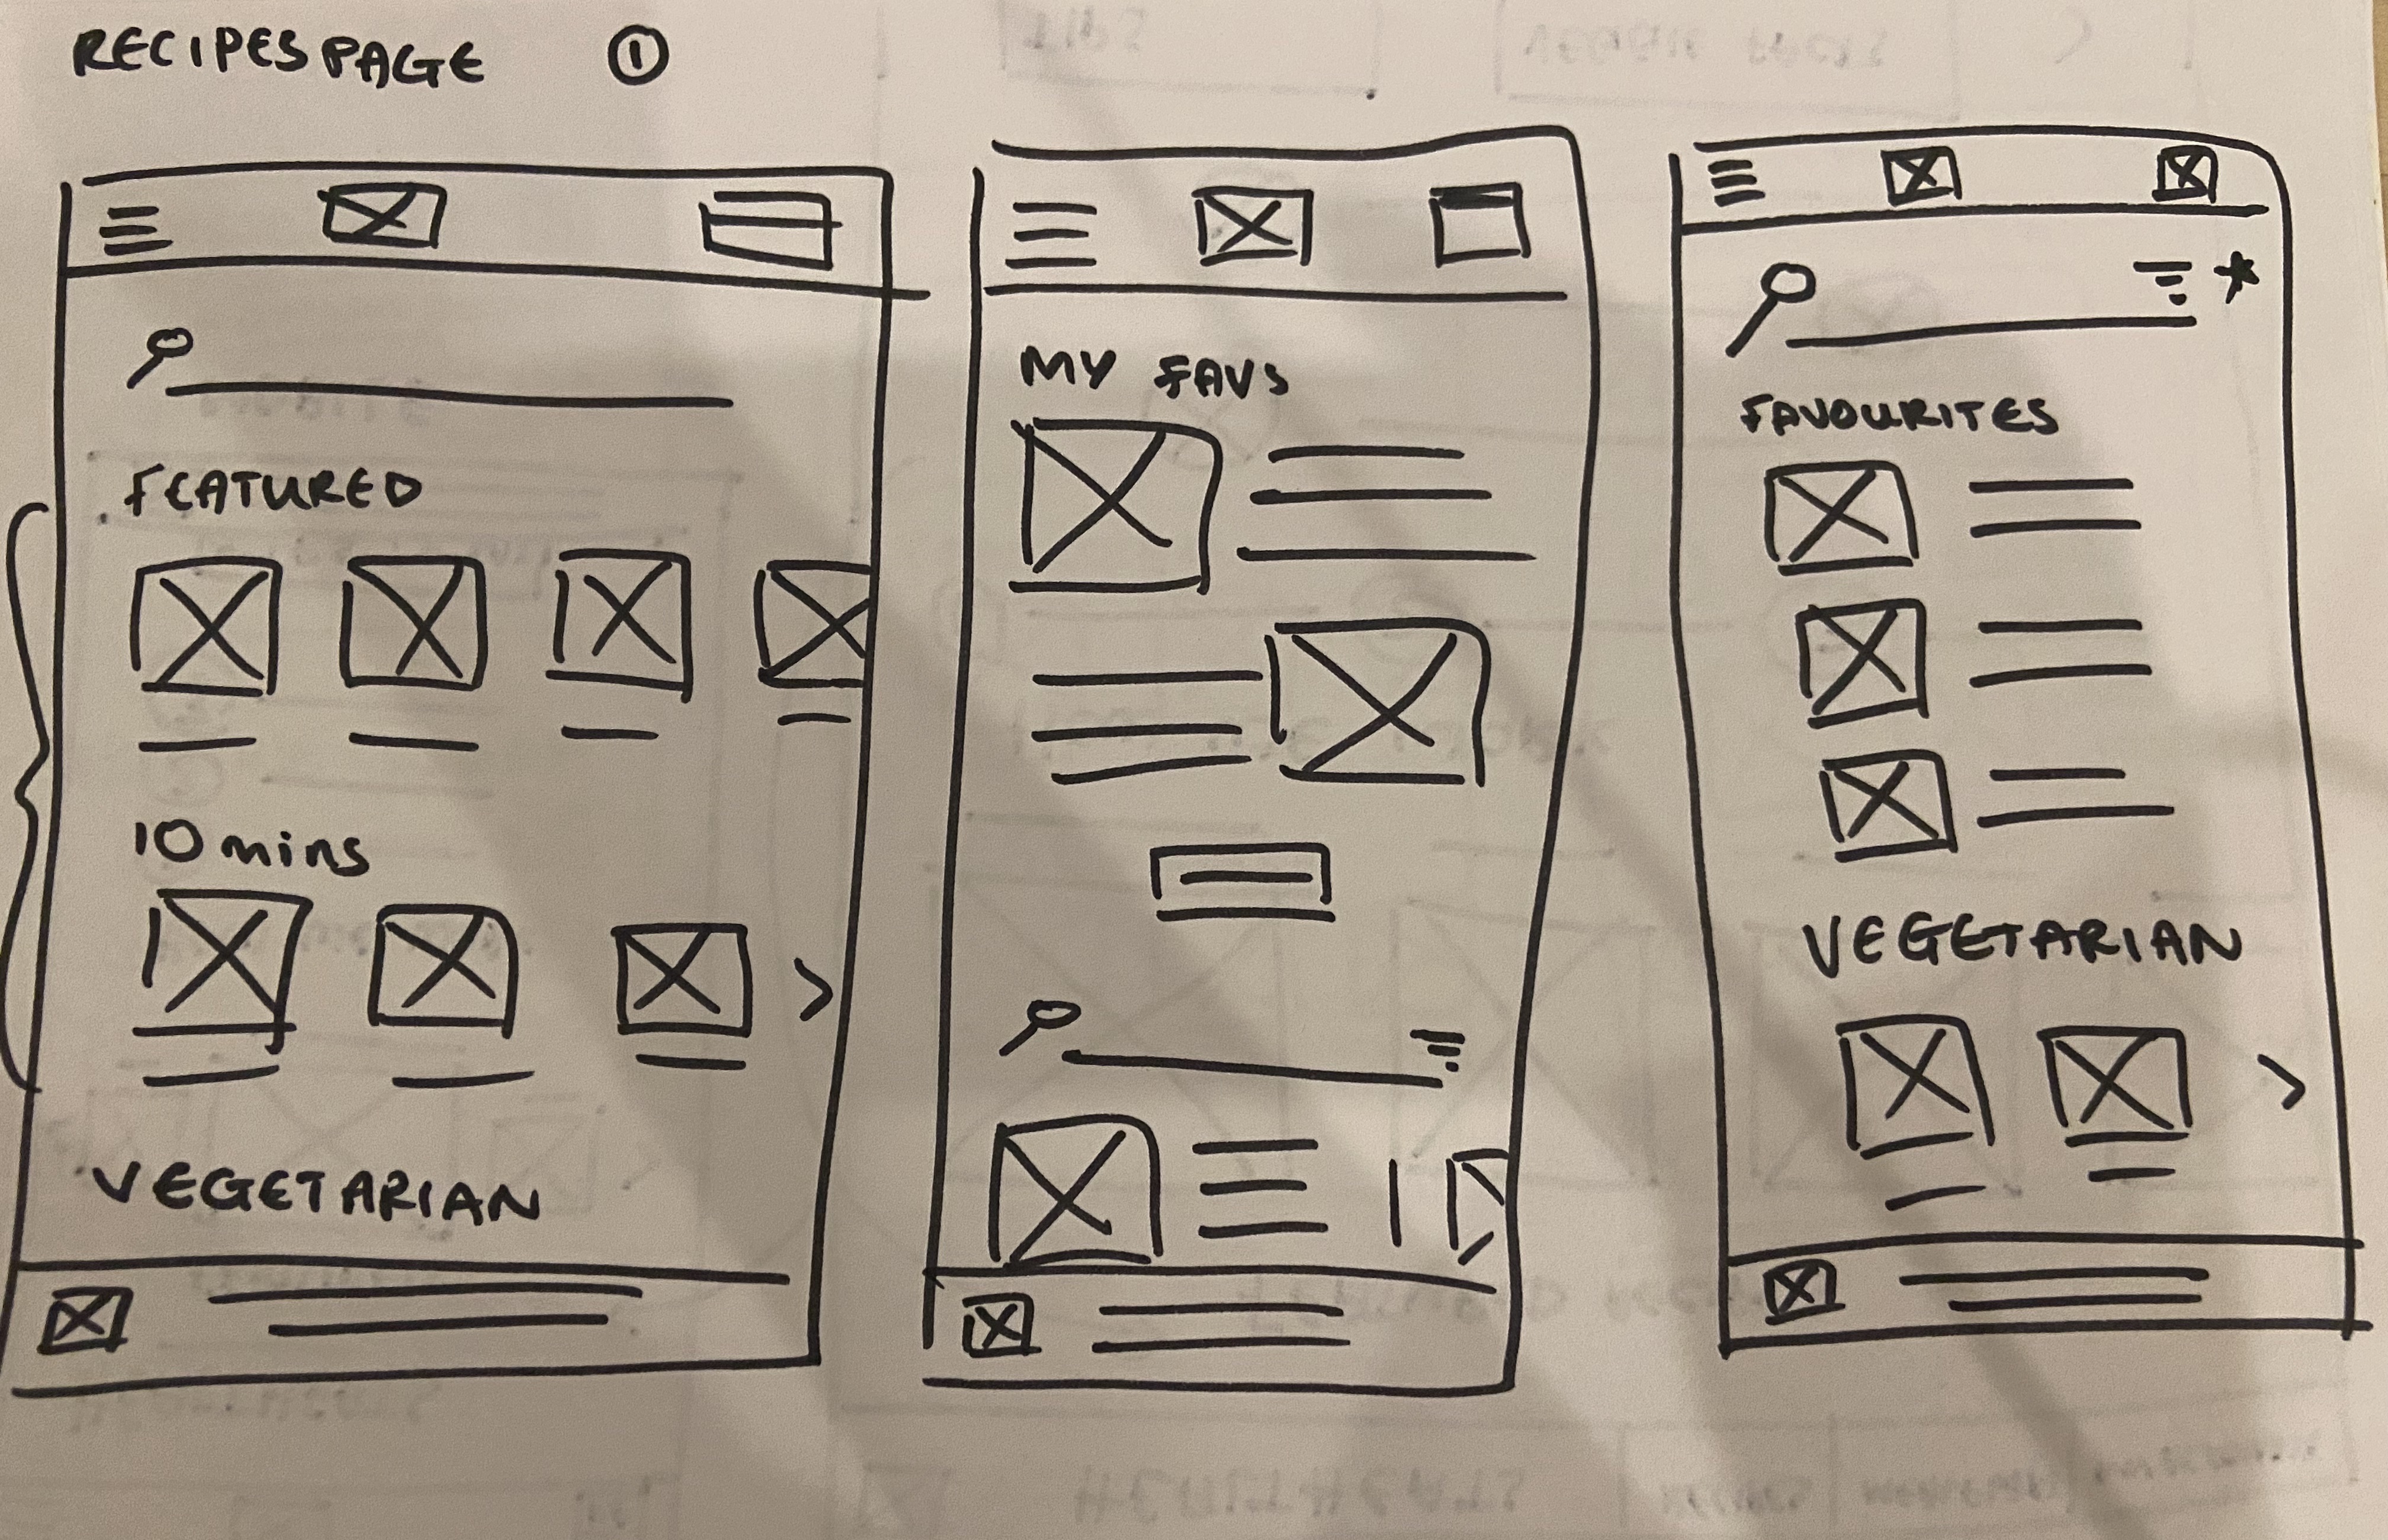 RECIPES PAGE ①
FEATURED
10 mins
VEGETARIAN
MY FAVS
FAVOURITES
VEGETARIAN